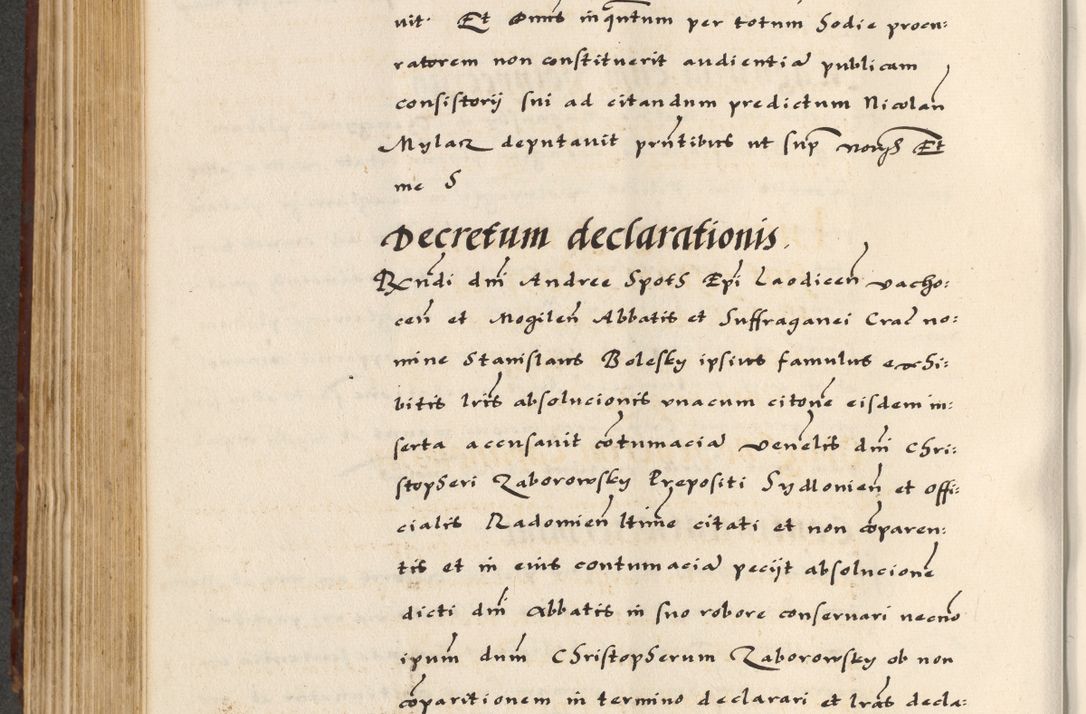 uit· Et Dnus inquantum per totum hodie procu-
ratorem non constituerit audientiā publicam
consistorij sui ad citandum predictum Nicolaū
Mylaz deputauit prñtibus ut sup Et
me S
Decretum declarationis.
Rñdi dñi Andree Spoth Epi Laodiceñ vacho:
ceñ et Mogileñ Abbatis et Suffraganei Crac̄ no:
mine Stanislaus Bolesky ipsius famulus exhi:
bitis lrīs absolucionis vnacum citōne eisdem in:
serta accusauit cōtumaciā veñelis dñi Chri:
stopheri Zaborowsky Prepositi Sydlonieñ et Offi:
cialis Radomieñ ltīme citati et non cōparen:
tis et in eius contumaciā pecijt absolucionē
dicti dñi Abbatis in suo robore conseruari necnō
ipum̄ dnum̄ Christopherum Zaborowsky ob non
cōparitionem in termino declarari et lrās decla: